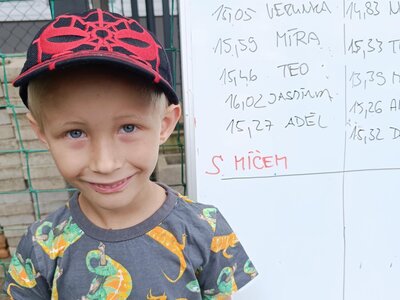 15,05 VERUNKA
15,59 MÍRA
15,46 TEO
16,02 JASMÍNA
15,27 ADÉL
S MÍČEM
14,83 N
15,33 T
13,39 M
15,26 A
15,32 D